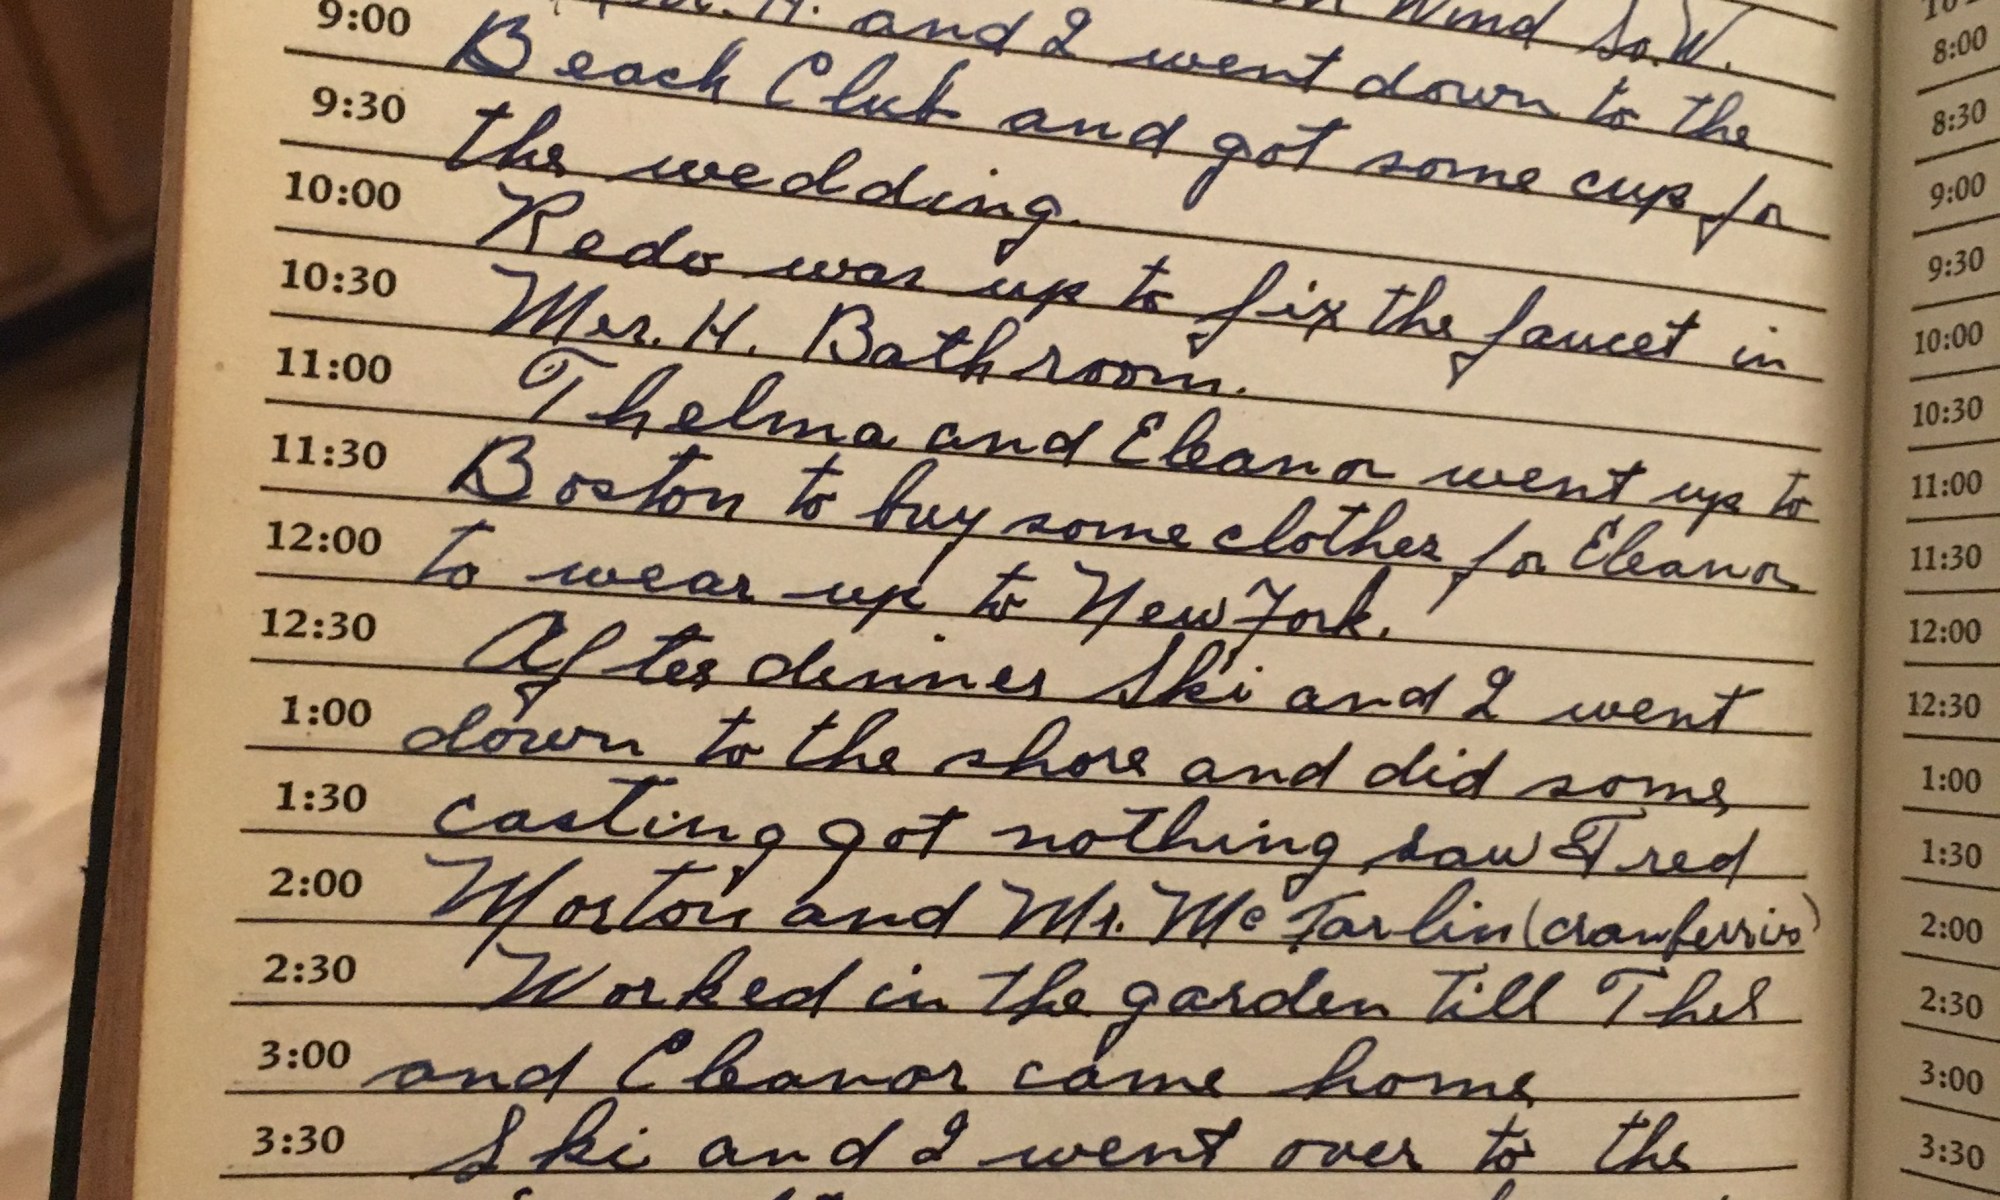 Wind So.W.
9:00 H. and I went down to the
Beach Club and got some cups for
9:30 the wedding.
10:00 Redo was up to fix the faucet in
10:30 Mrs. H. Bathroom.
11:00 Thelma and Eleanor went up to
11:30 Boston to buy some clothes for Eleanor
12:00 to wear up to New York.
12:30 After dinner Ski and I went
1:00 down to the shore and did some
1:30 casting got nothing saw Fred
2:00 Morton and Mr. McFarlin (cranberries)
2:30 Worked in the garden till Thel
3:00 and Eleanor came home
3:30 Ski and I went over to the
8:00
8:30
9:00
9:30
10:00
10:30
11:00
11:30
12:00
12:30
1:00
1:30
2:00
2:30
3:00
3:30